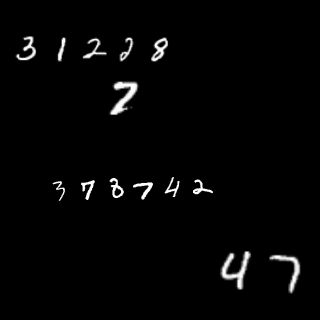 31228
2
378742
47